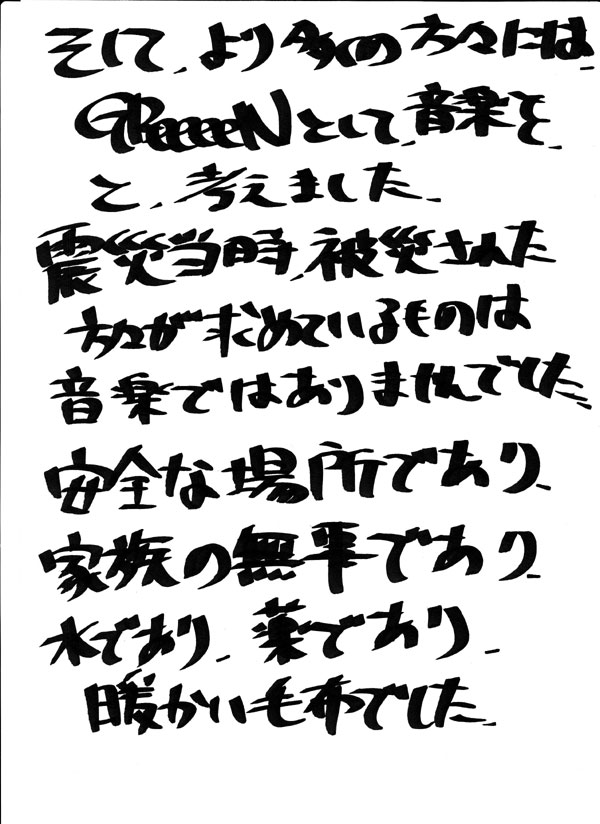 そして、より多くの方々には、
GReeeeNとして、音楽を、
と、考えました、
震災当時、被災された
方々が求めているものは
音楽ではありませんでした、
安全な場所であり、
家族の無事であり、
水であり、薬であり、
暖かい毛布でした、